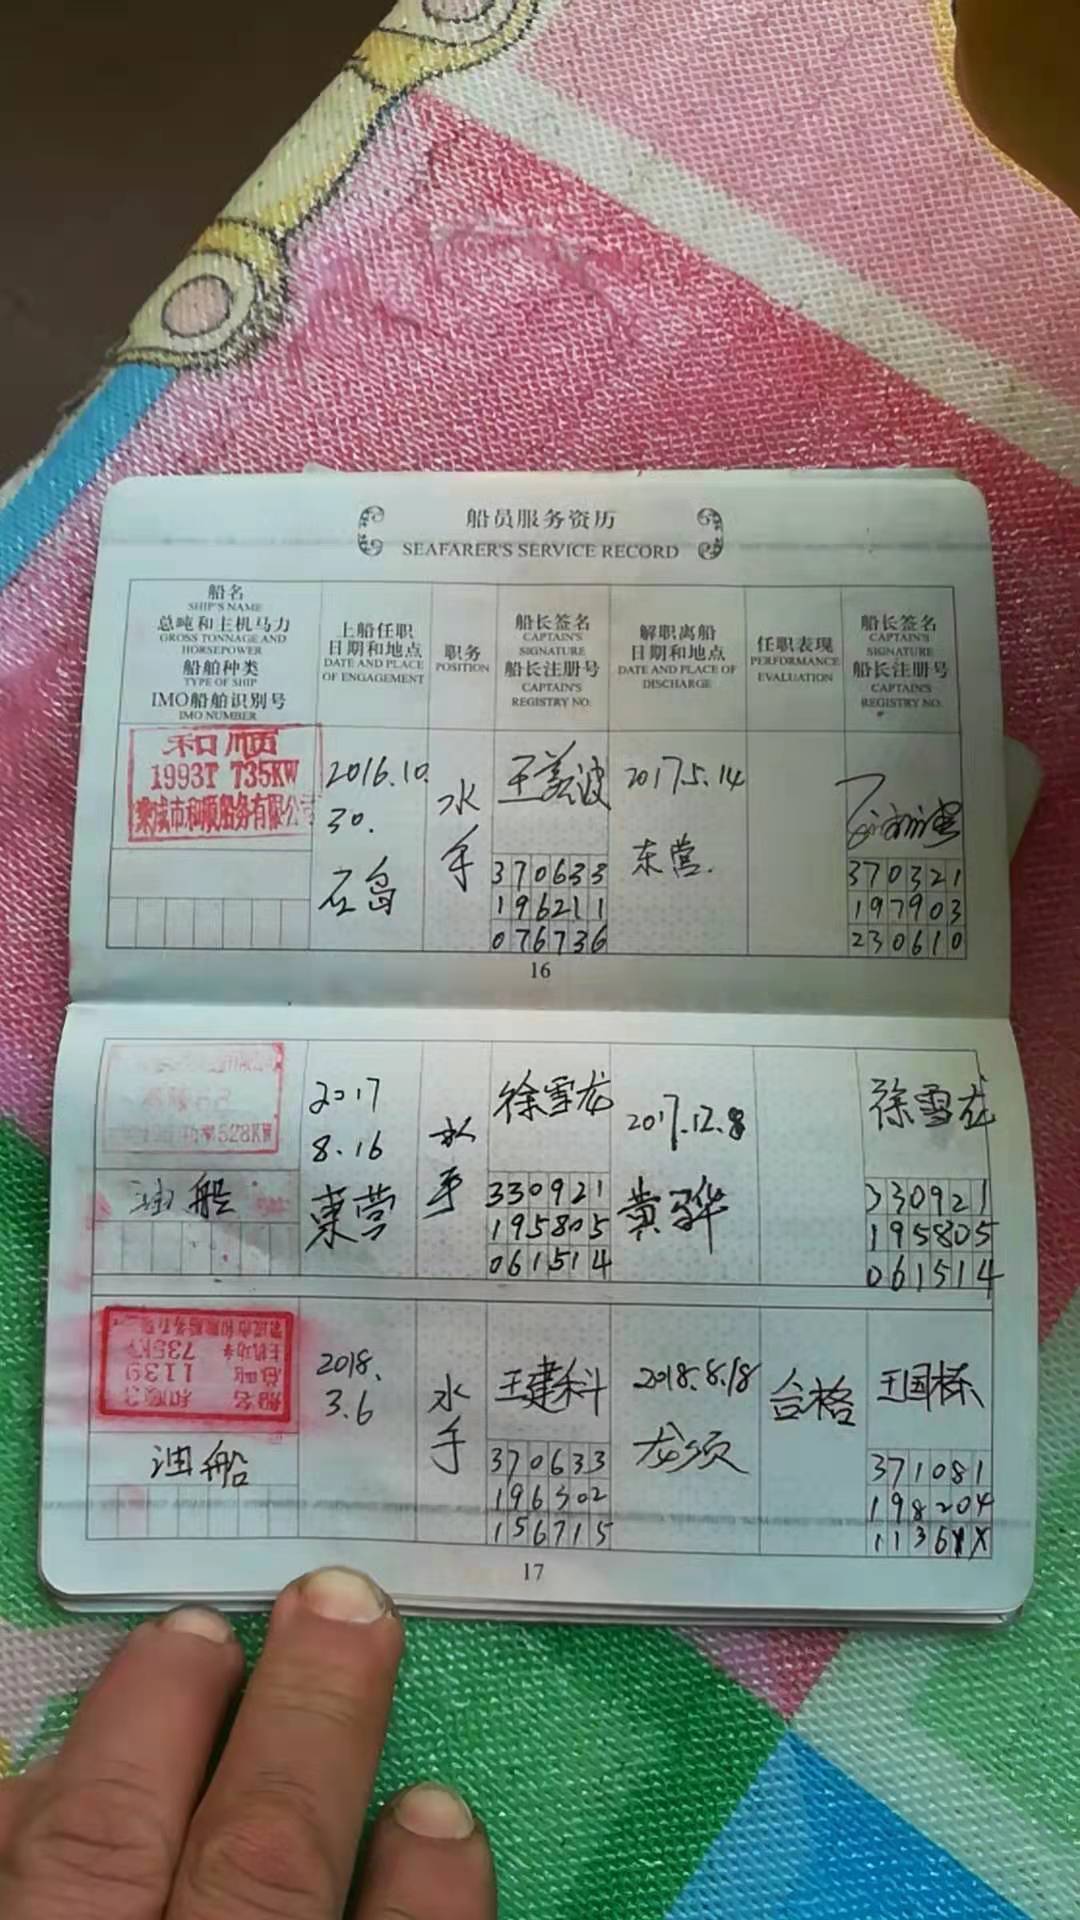 船员服务资历
SEAFARER'S SERVICE RECORD
船名
SHIP'S NAME
总吨和主机马力
GROSS TONNAGE AND
HORSEPOWER
船舶种类
TYPE OF SHIP
IMO船舶识别号
IMO NUMBER
上船任职
日期和地点
DATE AND PLACE
OF ENGAGEMENT
职务
POSITION
船长签名
CAPTAIN'S
SIGNATURE
船长注册号
CAPTAIN'S
REGISTRY NO.
解职离船
日期和地点
DATE AND PLACE OF
DISCHARGE
任职表现
PERFORMANCE
EVALUATION
船长签名
CAPTAIN'S
SIGNATURE
船长注册号
CAPTAIN'S
REGISTRY NO.
和顺
1993T 735KW
荣成市和顺服务有限公司
2016.10.
30.
石岛
水
手
王美波
370633
196211
076736
2017.5.14
东营.
370321
197903
230610
16
528KW
油船
2017
8.16
東营
水
手
徐雪龙
330921
195805
061514
2017.12.8
黄骅
徐雪龙
330921
195805
061514
船名 和顺
总吨 1139
主机功率 735KW
荣成市和顺服务有限
油船
2018.
3.6
水
手
王建科
370633
196302
156715
2018.8.18
龙须
合格
王国栋
371081
198204
17